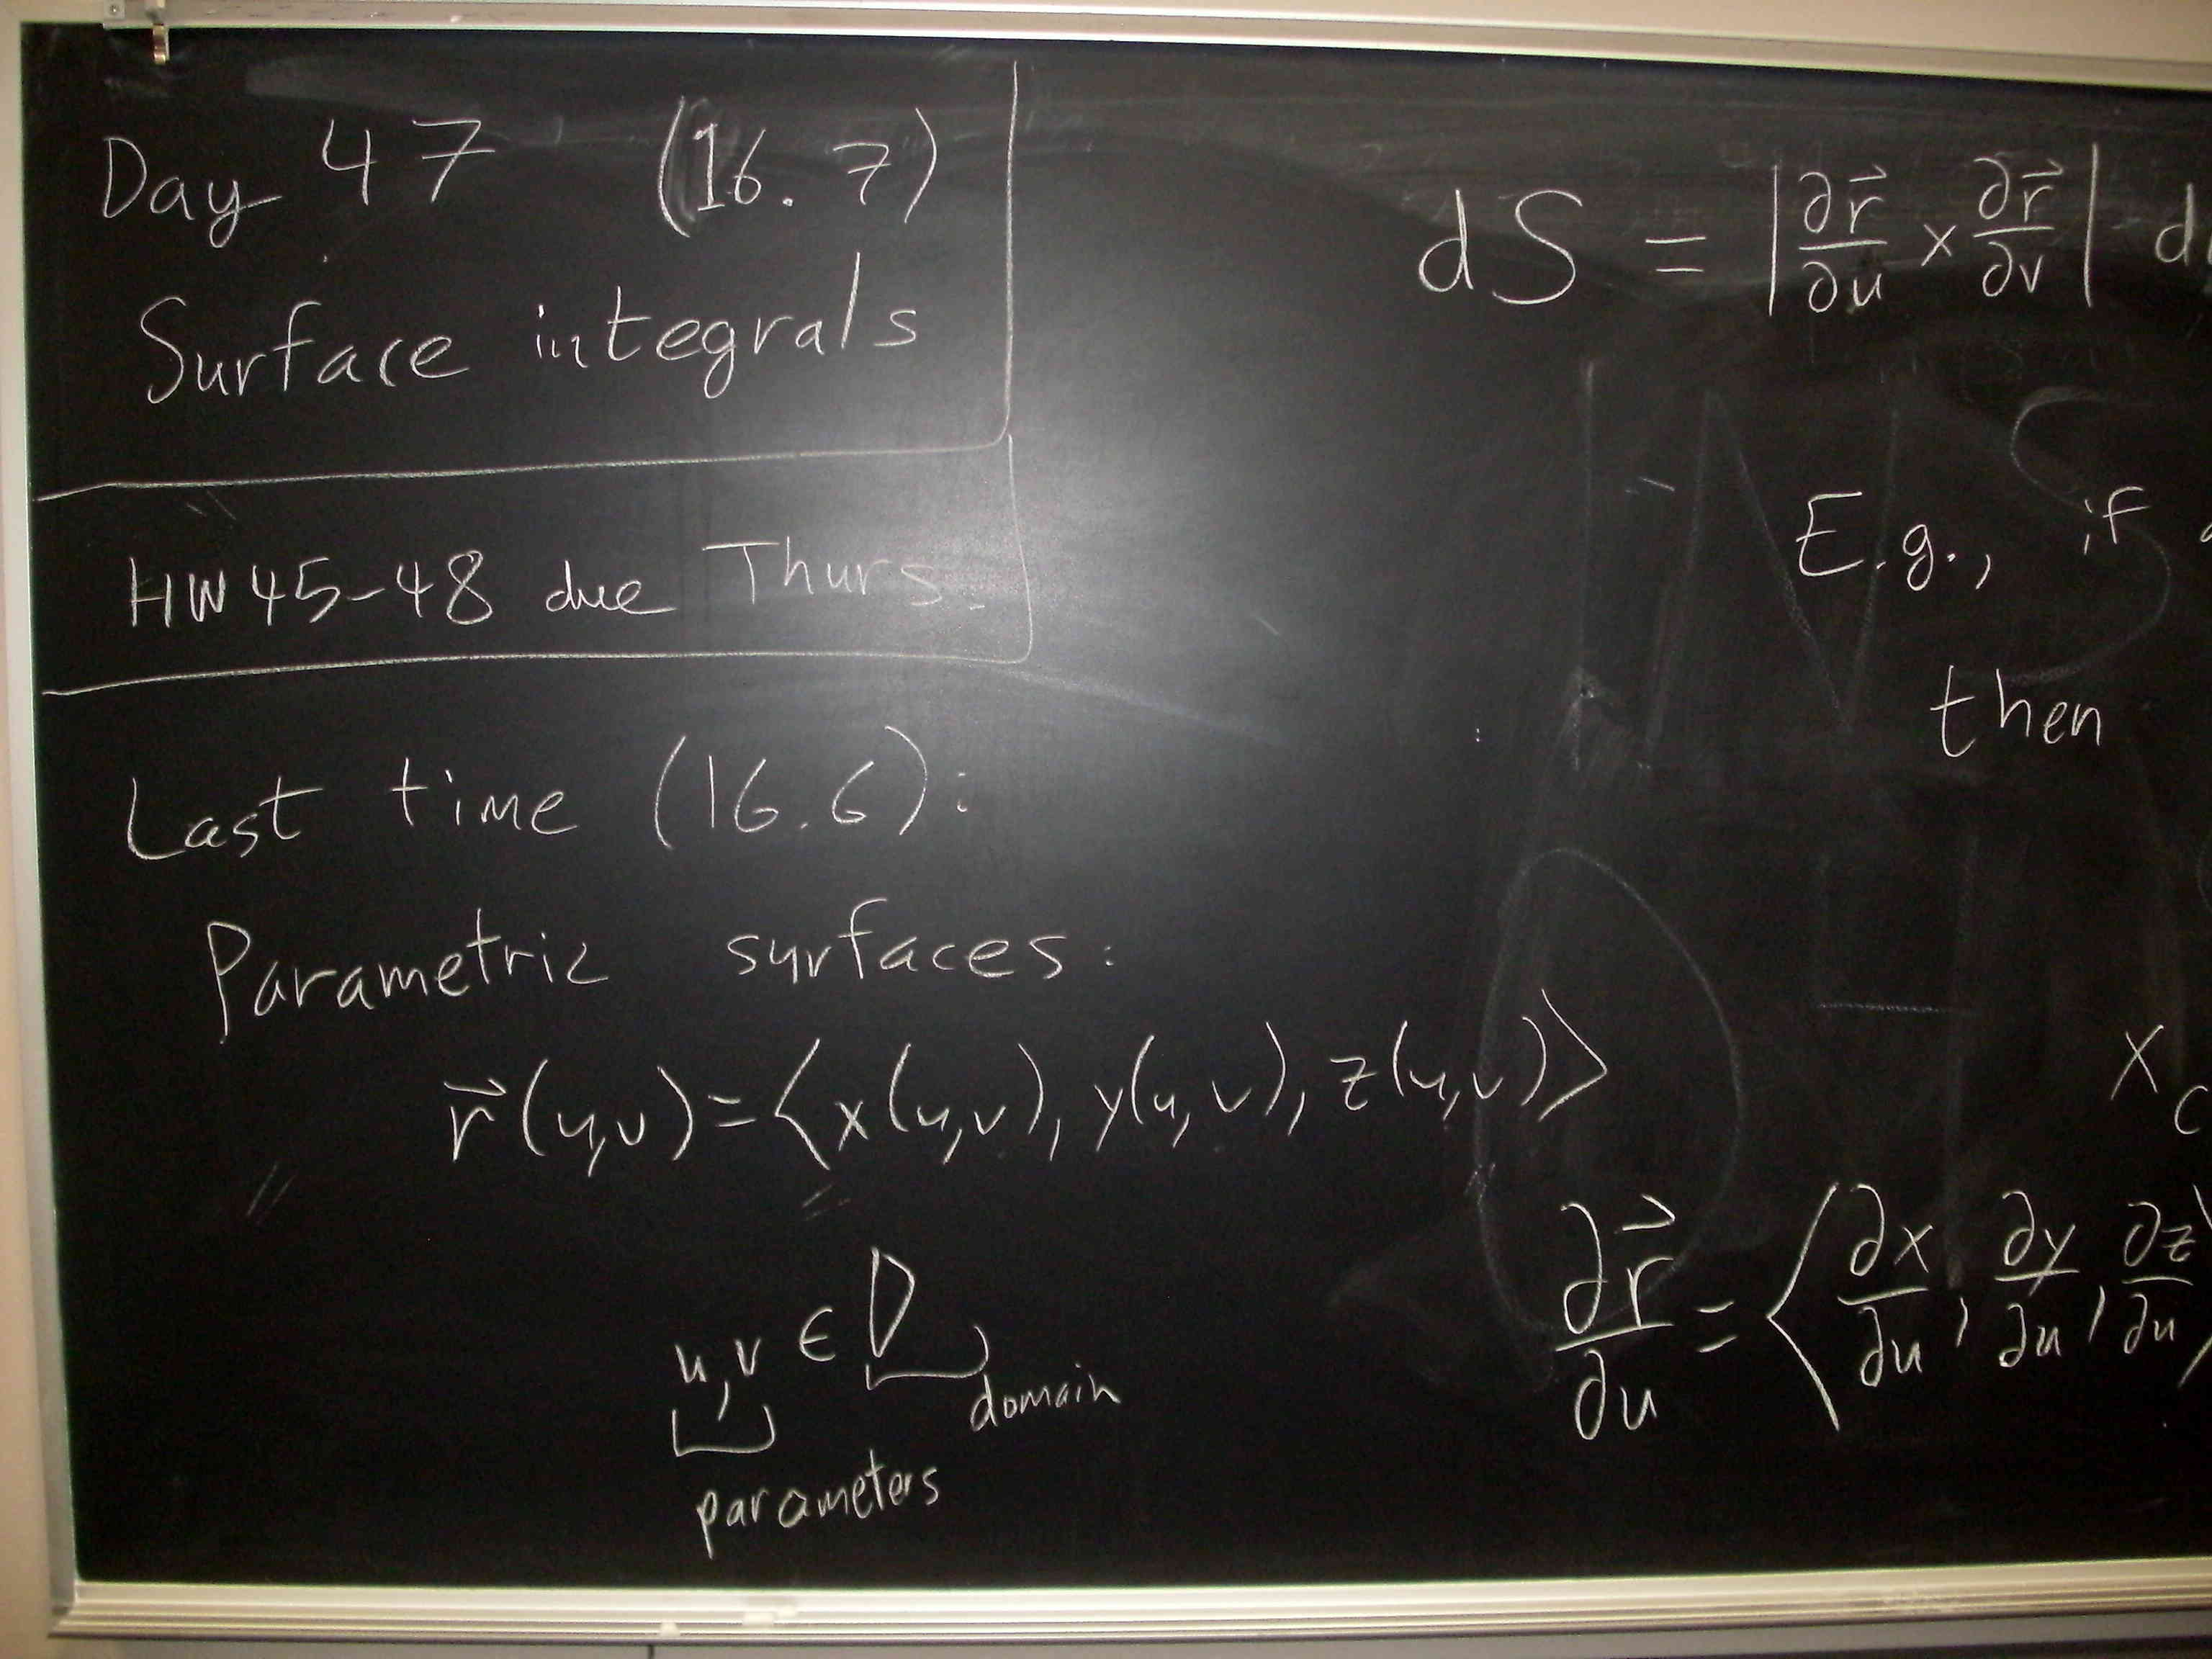 Day 47 (16.7)
Surface integrals
HW 45-48 due Thurs.
Last time (16.6):
Parametric surfaces:
r⃗(u,v)=⟨x(u,v), y(u,v), z(u,v)⟩
u,v ∈ D
domain
parameters
dS = |∂r⃗/∂u × ∂r⃗/∂v| d
E.g., if
then
x
∂r⃗/∂u = ⟨∂x/∂u, ∂y/∂u, ∂z/∂u⟩